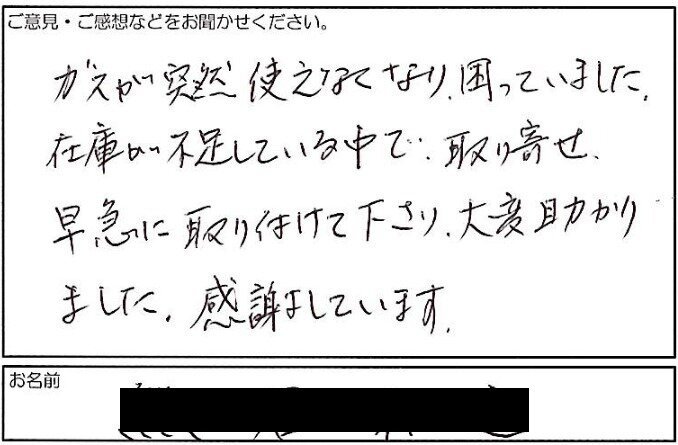 ご意見・ご感想などをお聞かせください。
ガスが突然使えなくなり、困っていました。
在庫が不足している中で、取り寄せ、
早急に取り付けて下さり、大変助かり
ました。感謝しています。
お名前